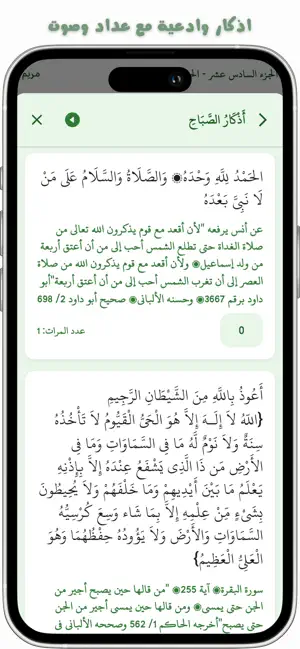 اذكار وادعية مع عداد وصوت
الجزء السادس عشر - الح
مريم
أَذْكَارُ الصَّبَاحِ
الحَمْدُ لِلَّهِ وَحْدَهُ◉ وَالصَّلَاةُ وَالسَّلَامُ عَلَى مَنْ
لَا نَبِيَّ بَعْدَهُ
عن أنس يرفعه "لأن أقعد مع قوم يذكرون الله تعالى من
صلاة الغداة حتى تطلع الشمس أحب إلى من أن أعتق أربعة
من ولد إسماعيل◉ ولأن أقعد مع قوم يذكرون الله من صلاة
العصر إلى أن تغرب الشمس أحب إلى من أن أعتق أربعة"أبو
داود برقم 3667◉ وحسنه الألبانى◉ صحيح أبو داود 2/ 698
عدد المرات: 1
0
أَعُوذُ بِاللَّهِ مِنَ الشَّيْطَانِ الرَّجِيمِ
{اللَّهُ لاَ إِلَـهَ إِلاَّ هُوَ الْحَيُّ الْقَيُّومُ لاَ تَأْخُذُهُ
سِنَةٌ وَلاَ نَوْمٌ لَّهُ مَا فِى السَّمَاوَاتِ وَمَا فِى
الأَرْضِ مَن ذَا الَّذِى يَشْفَعُ عِنْدَهُ إِلاَّ بِإِذْنِهِ
يَعْلَمُ مَا بَيْنَ أَيْدِيهِمْ وَمَا خَلْفَهُمْ وَلاَ يُحِيطُونَ
بِشَىْءٍ مِّنْ عِلْمِهِ إِلاَّ بِمَا شَاء وَسِعَ كُرْسِيُّهُ
السَّمَاوَاتِ وَالأَرْضَ وَلاَ يَؤُودُهُ حِفْظُهُمَا وَهُوَ
الْعَلِىُّ الْعَظِيمُ}
سورة البقرة◉ آية 255◉ "من قالها حين يصبح أجير من
الجن حتى يمسى◉ ومن قالها حين يمسى أجير من الجن
حتى يصبح"أخرجه الحاكم 1/ 562 وصححه الألبانى فى